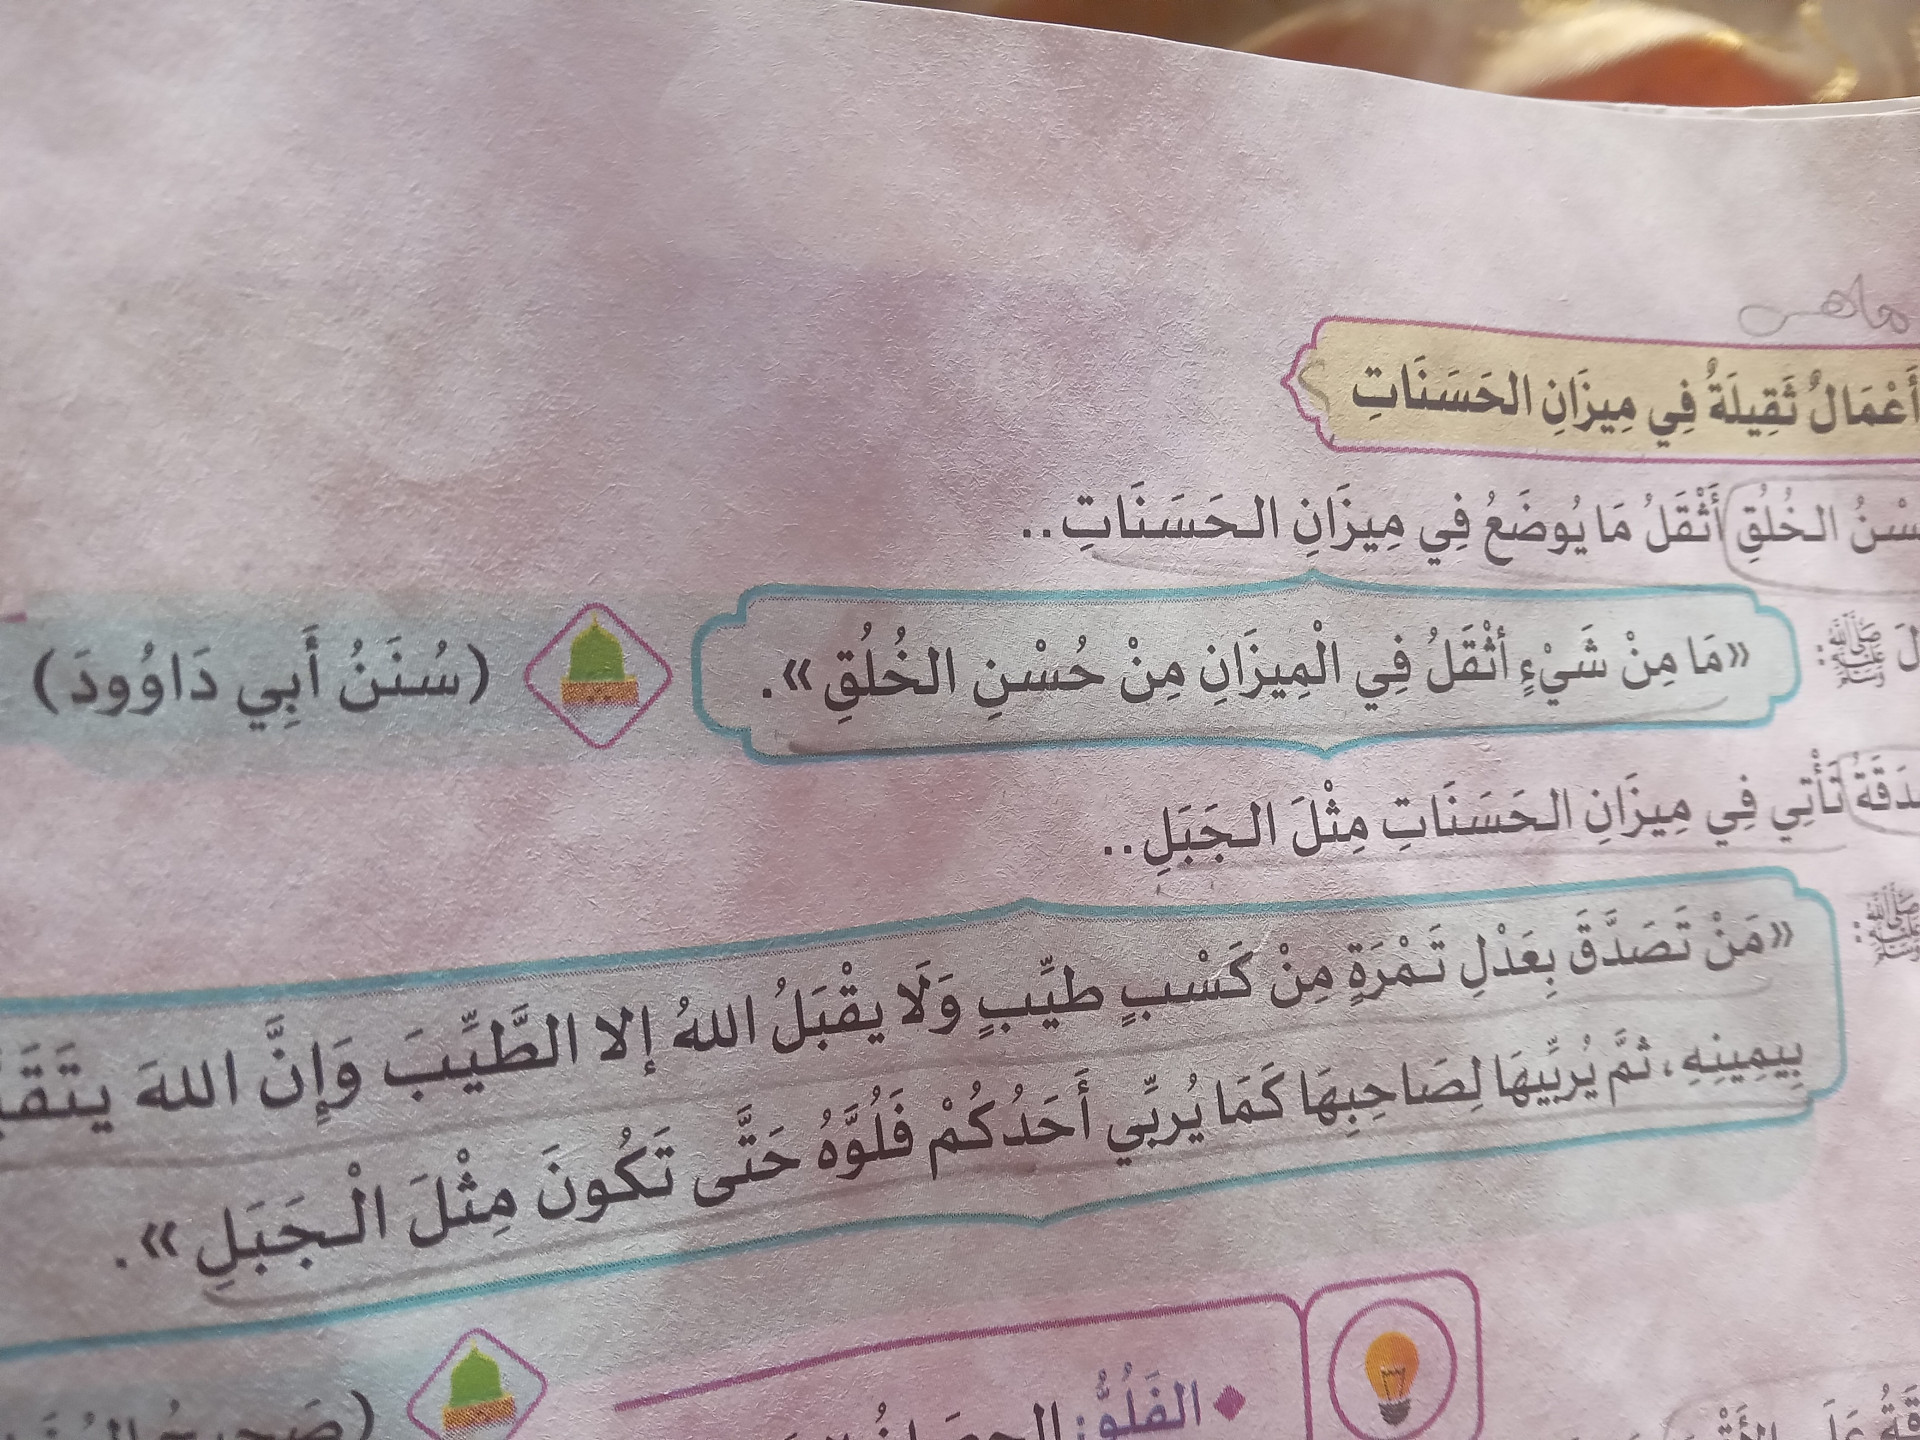 ماهي
أَعْمَالٌ ثَقِيلَةٌ فِي مِيزَانِ الحَسَنَاتِ
الخُلُقِ أَثْقَلُ مَا يُوضَعُ فِي مِيزَانِ الحَسَنَاتِ..
ﷺ: «مَا مِنْ شَيْءٍ أَثْقَلُ فِي الْمِيزَانِ مِنْ حُسْنِ الخُلُقِ». (سُنَنُ أَبِي دَاوُودَ)
تَأْتِي فِي مِيزَانِ الحَسَنَاتِ مِثْلَ الجَبَلِ..
ﷺ: «مَنْ تَصَدَّقَ بِعَدْلِ تَمْرَةٍ مِنْ كَسْبٍ طيِّبٍ وَلَا يقْبَلُ اللهُ إلا الطَّيِّبَ وَإِنَّ اللهَ
بِيمِينِهِ، ثمَّ يُربِّيهَا لِصَاحِبِهَا كَمَا يُربِّي أَحَدُكُمْ فَلُوَّهُ حَتَّى تَكُونَ مِثْلَ الْجَبَلِ».
الفَلُوُّ: